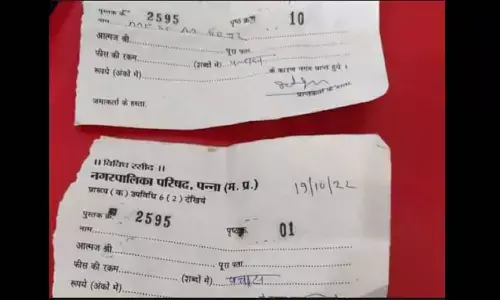 पुस्तक क्र. 2595 पृष्ठ क्र. 10
नाम
आत्मज श्री
फीस की रकम पूरा पता
रूपये (अंको में) (शब्दों में) के कारण नगद प्राप्त हुये ।
जमाकर्ता के हस्ता. प्राप्तकर्ता के हस्ता.
।। विविध रसीद ।।
नगरपालिका परिषद, पन्ना (म. प्र.) 19/10/22
प्रारूप (क) उपविधि 6 (2) देखिये
पुस्तक क्र 2595 पृष्ठ 01
नाम
आत्मज श्री
फीस की रकम पूरा पता
रूपये (अंको में) (शब्दों में) पचास